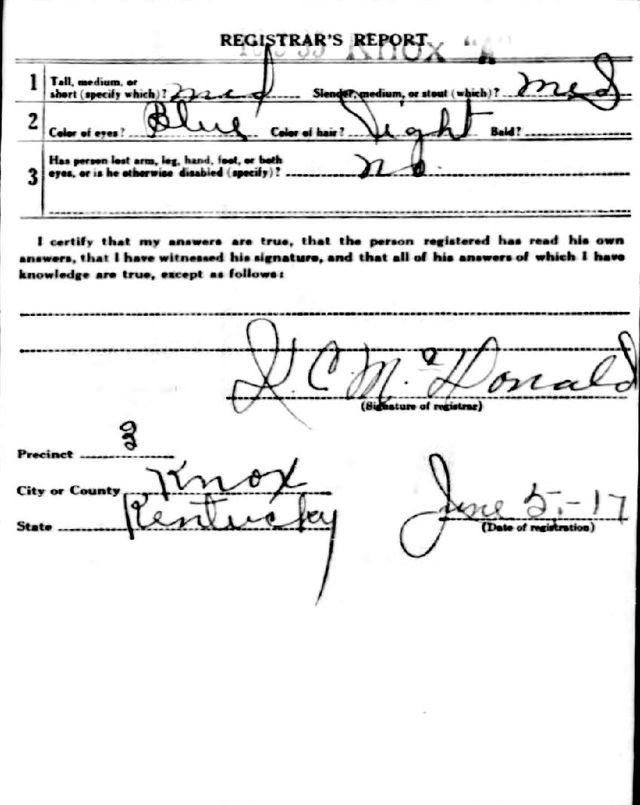 REGISTRAR'S REPORT
Knox "A"
1 Tall, medium, or short (specify which)? med Slender, medium, or stout (which)? med
2 Color of eyes? Blue Color of hair? Light Bald?
3 Has person lost arm, leg, hand, foot, or both eyes, or is he otherwise disabled (specify)? no.
I certify that my answers are true, that the person registered has read his own
answers, that I have witnessed his signature, and that all of his answers of which I have
knowledge are true, except as follows:
C. McDonald
(Signature of registrar)
Precinct 2
City or County Knox
State Kentucky
June 5.-17
(Date of registration)